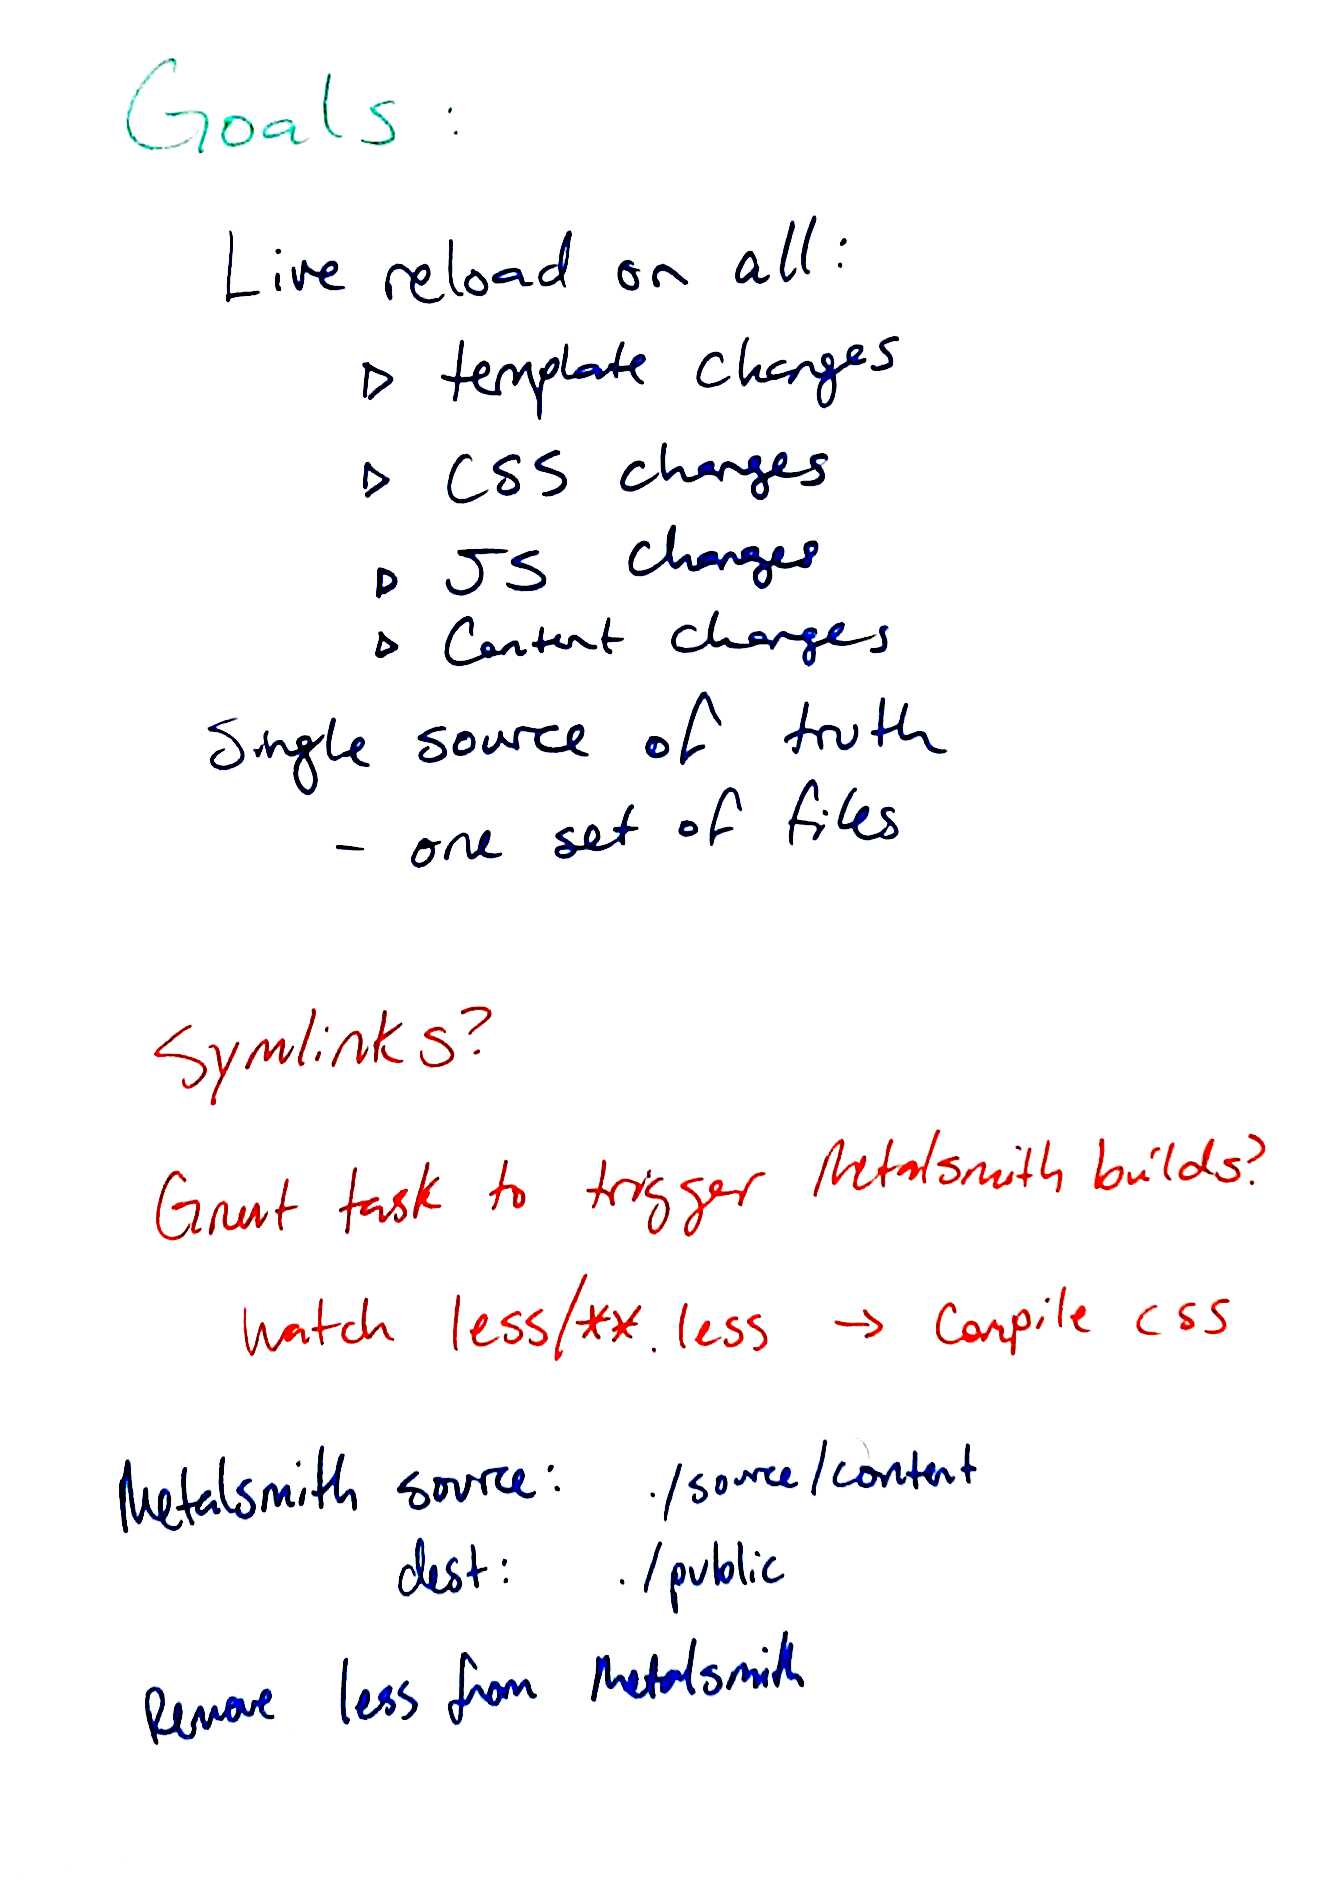 Goals:
Live reload on all:
▷ template changes
▷ CSS changes
▷ JS changes
▷ Content changes
Single source of truth
- one set of files
Symlinks?
Grunt task to trigger Metalsmith builds?
Watch less/**.less → Compile css
Metalsmith source: ./source/content
dest: ./public
Remove less from Metalsmith